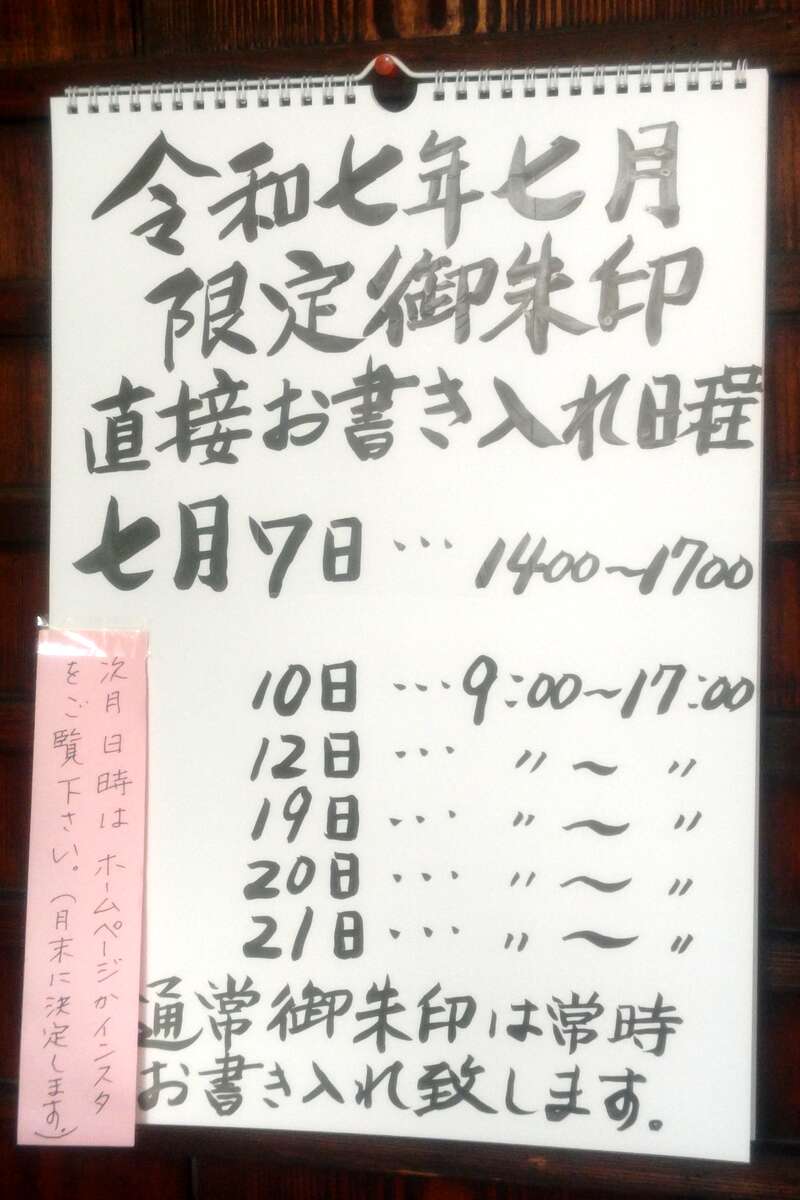 令和七年七月
限定御朱印
直接お書き入れ日程
七月7日… 1400〜1700
10日…9:00〜17:00
12日… 〃 〜 〃
19日… 〃 〜 〃
20日… 〃 〜 〃
21日… 〃 〜 〃
通常御朱印は常時
お書き入れ致します。
次月日時はホームページかインスタ
をご覧下さい。(月末に決定します。)